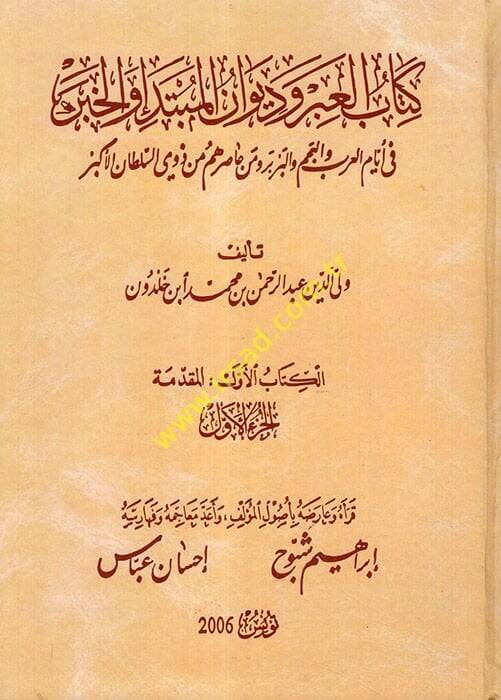 كتاب العبر وديوان المبتدإ والخبر
في أيام العرب والعجم والبربر ومن عاصرهم من ذوي السلطان الأكبر
تأليف
ولي الدين عبد الرحمن بن محمد ابن خلدون
الكتاب الأول : المقدمة
الجزء الأول
قرأه وعارضه بأصول المؤلف، وأعد معاجمه وفهارسه
إبراهيم شبوح إحسان عباس
تونس 2006